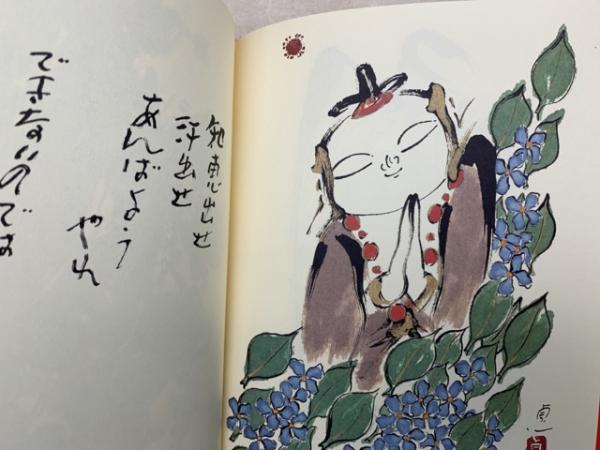 知恵出せ
汗出せ
あんばよう
やれ
できないのでは
貞一
貞